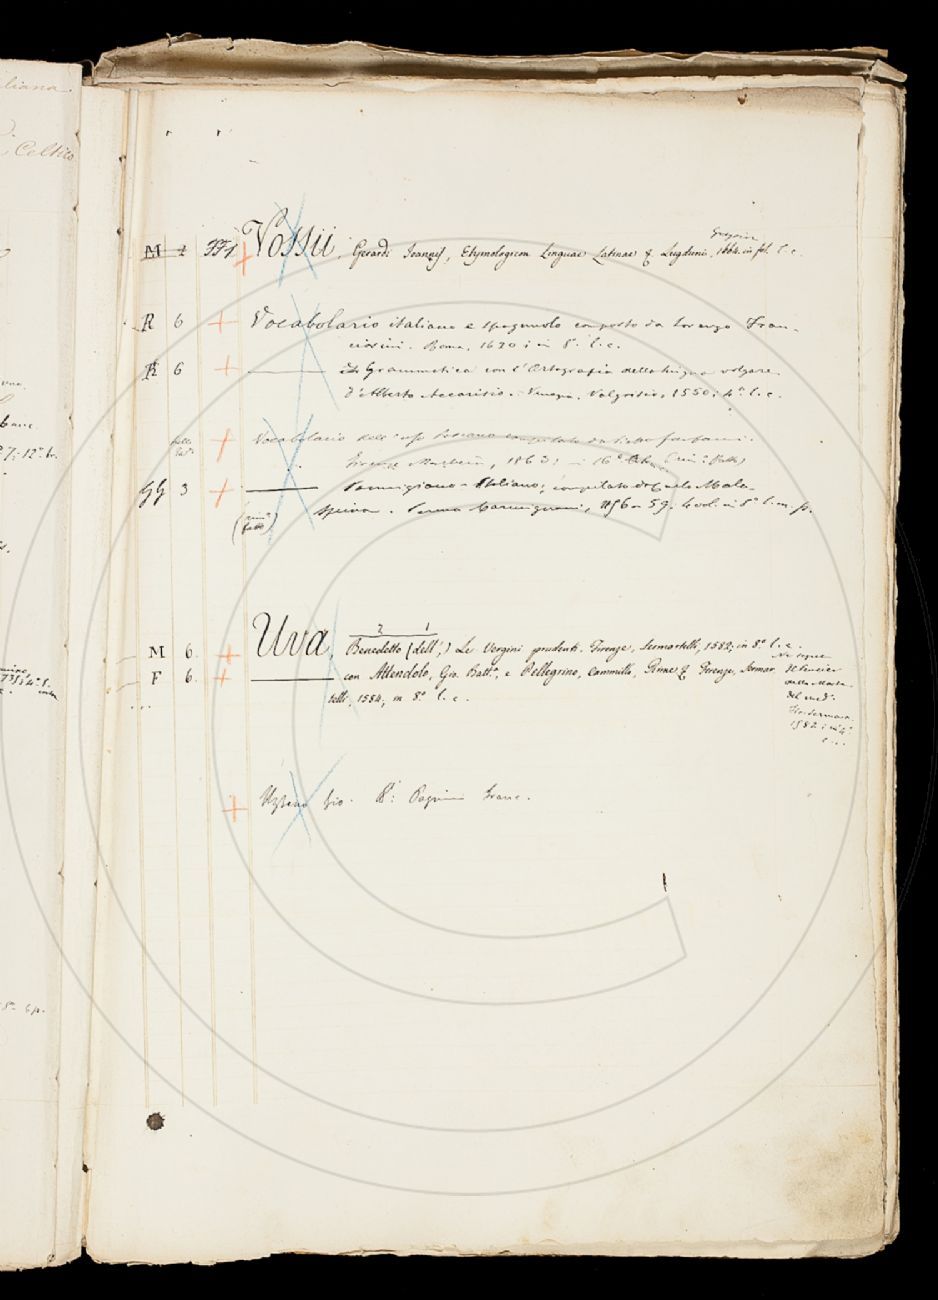 liana.
Celtico
M 1 FF1 Vossii, Gerardi Joannis, Etymologicon Linguae Latinae & Lugduni, 1664. in fol. l. c.
R 6 Vocabolario italiano e spagnuolo composto da Lorenzo Fran-
ciosini. Roma, 1620; in 8.° l. c.
R 6 Grammatica con l'Ortografia della lingua volgare
d'Alberto Accarisio. Venezia, Valgrisio, 1550; 4.° l. c.
Vocabolario dell'uso toscano compilato da Pietro Fanfani.
Firenze 1863; in 16.°
GG 3 Parmigiano-Italiano; compilato da Carlo Mala-
spina. Parma Carmignani, 1856-59. 4 vol. in 8.°
2 1
M 6. Uva, Benedetto (dell',) Le Vergini prudenti. Firenze, Sermartelli, 1582; in 8.° l. c.
F 6. con Attendolo, Gio. Batt.ª, e Pellegrino, Cammillo, Rime & Firenze, Sermar
telli, 1584; in 8.° l. c.
della Morte
del med.°
1582; in 4.°
l. c.
Uzzano Gio. V: Pagnini Franc.